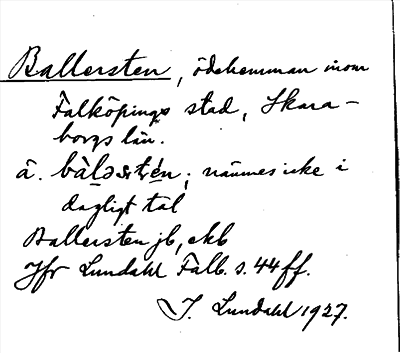 Ballersten, ödehemman inom
Falköpings stad, Skara-
borgs län.
ä. bàləstén; nämnes icke i
dagligt tal
Ballersten jb, ekb
Jfr Lundahl Falb. s. 44 ff.
I. Lundahl 1927.